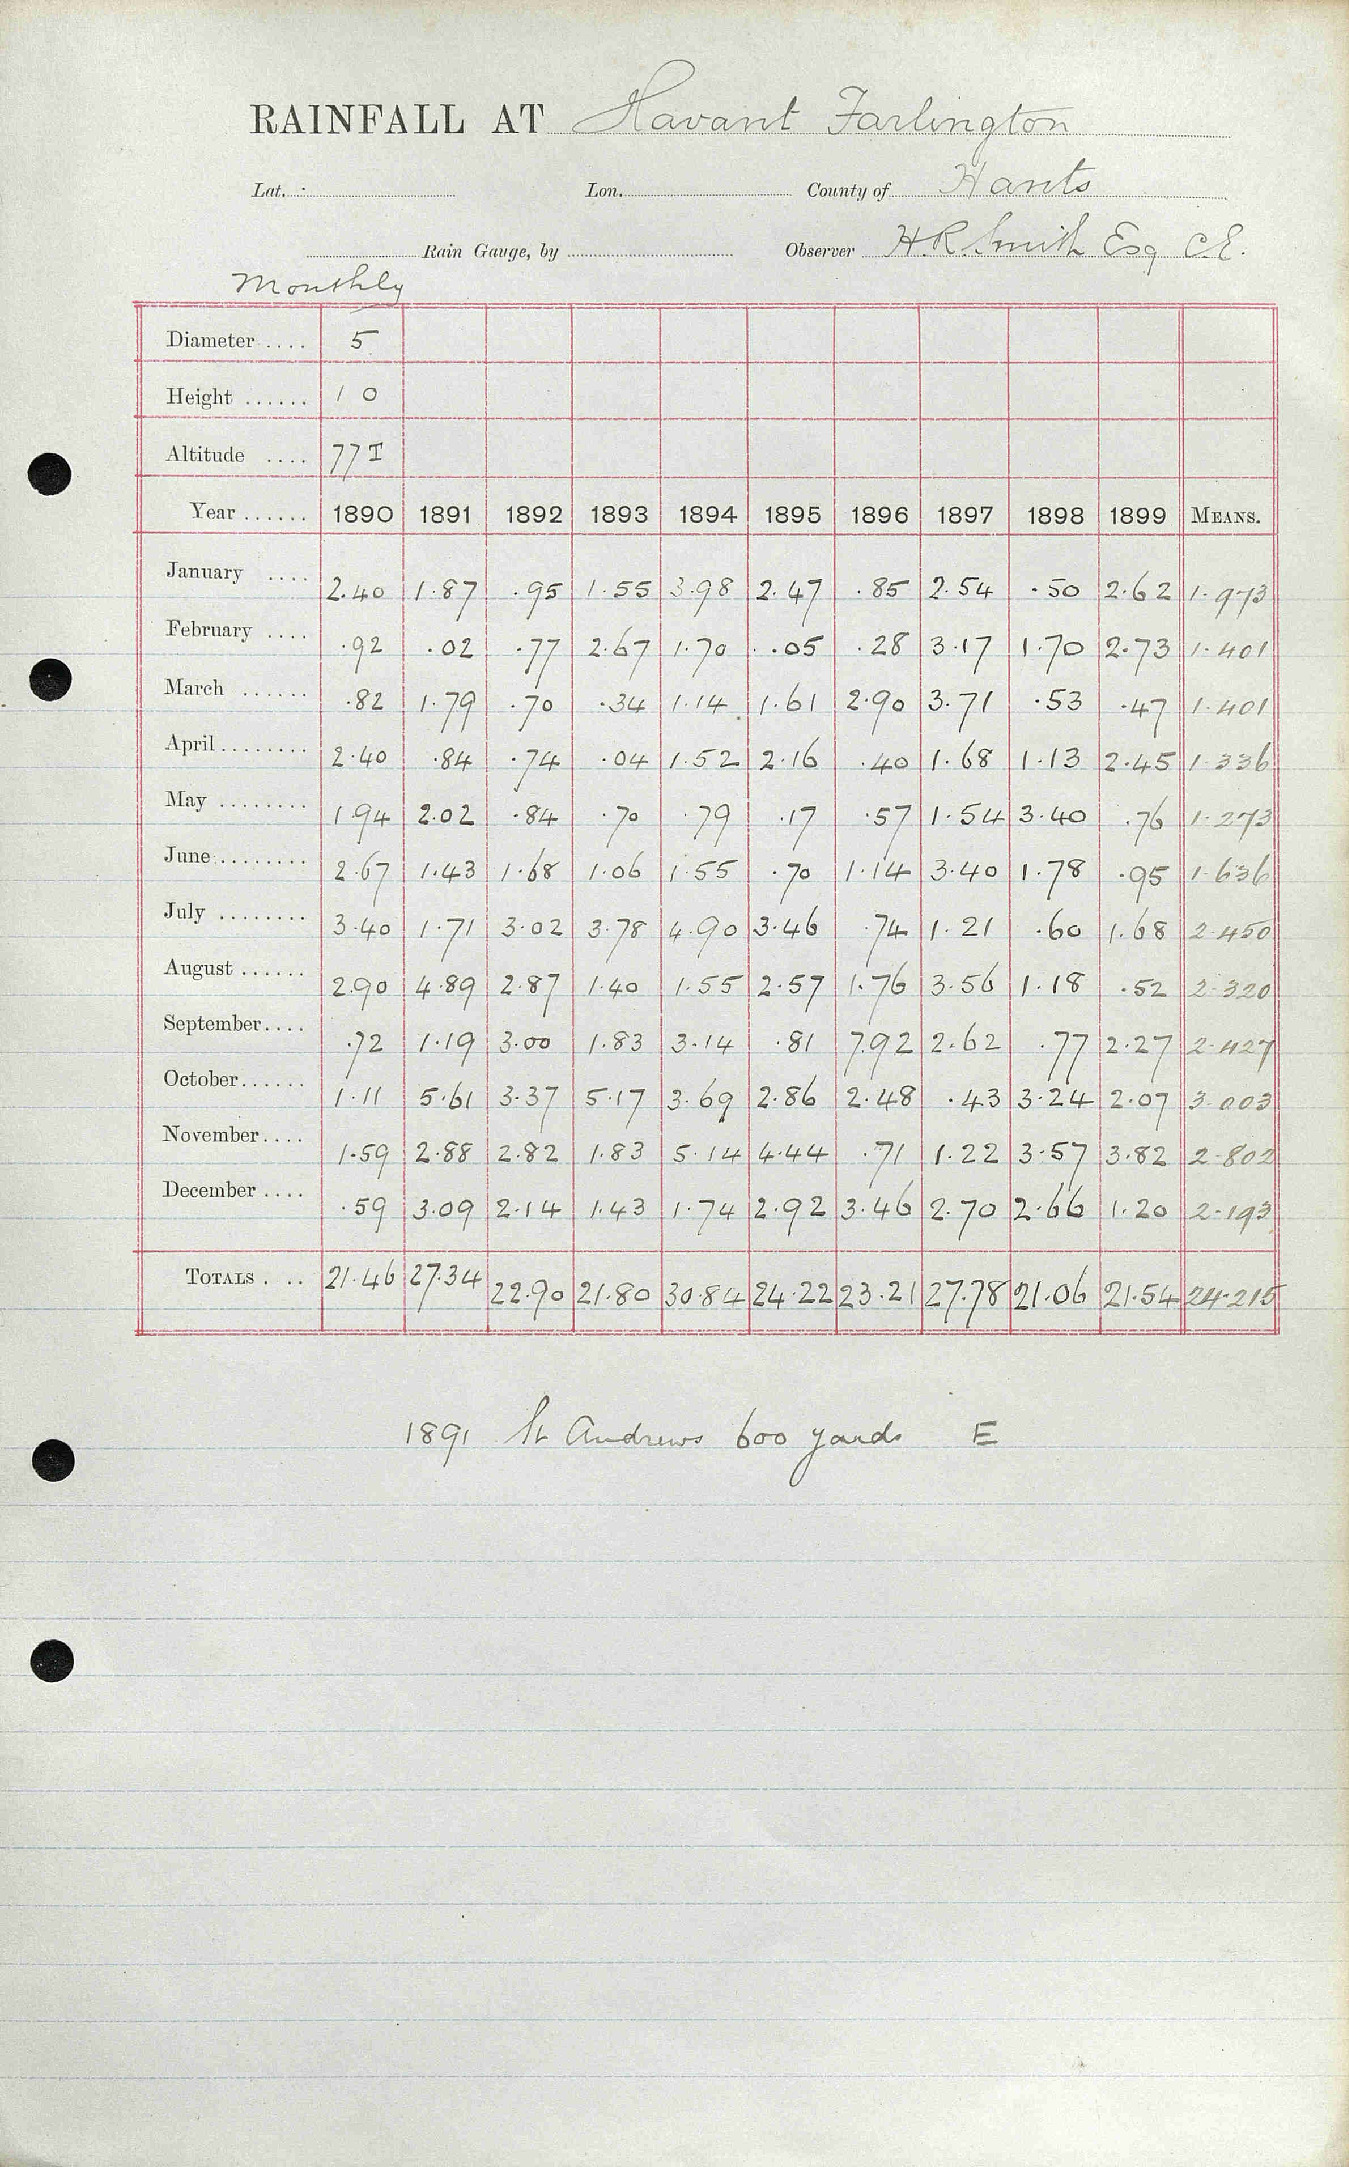 RAINFALL AT Havant Farlington
Lat. Lon. County of Hants
Rain Gauge, by Observer H.R. Smith Esq C.E.
Monthly
Diameter .... 5
Height ...... 10
Altitude .... 77 T
Year ...... 1890 1891 1892 1893 1894 1895 1896 1897 1898 1899 MEANS.
January .... 2.40 1.87 .95 1.55 3.98 2.47 .85 2.54 .50 2.62 1.973
February .... .92 .02 .77 2.67 1.70 .05 .28 3.17 1.70 2.73 1.401
March ...... .82 1.79 .70 .34 1.14 1.61 2.90 3.71 .53 .47 1.401
April ........ 2.40 .84 .74 .04 1.52 2.16 .40 1.68 1.13 2.45 1.336
May ........ 1.94 2.02 .84 .70 .79 .17 .57 1.54 3.40 .76 1.273
June ........ 2.67 1.43 1.68 1.06 1.55 .70 1.14 3.40 1.78 .95 1.636
July ........ 3.40 1.71 3.02 3.78 4.90 3.46 .74 1.21 .60 1.68 2.450
August ...... 2.90 4.89 2.87 1.40 1.55 2.57 1.76 3.56 1.18 .52 2.320
September .... .72 1.19 3.00 1.83 3.14 .81 7.92 2.62 .77 2.27 2.427
October ...... 1.11 5.61 3.37 5.17 3.69 2.86 2.48 .43 3.24 2.07 3.003
November .... 1.59 2.88 2.82 1.83 5.14 4.44 .71 1.22 3.57 3.82 2.802
December .... .59 3.09 2.14 1.43 1.74 2.92 3.46 2.70 2.66 1.20 2.193
TOTALS . .. 21.46 27.34 22.90 21.80 30.84 24.22 23.21 27.78 21.06 21.54 24.215
1891 St Andrews 600 yards E